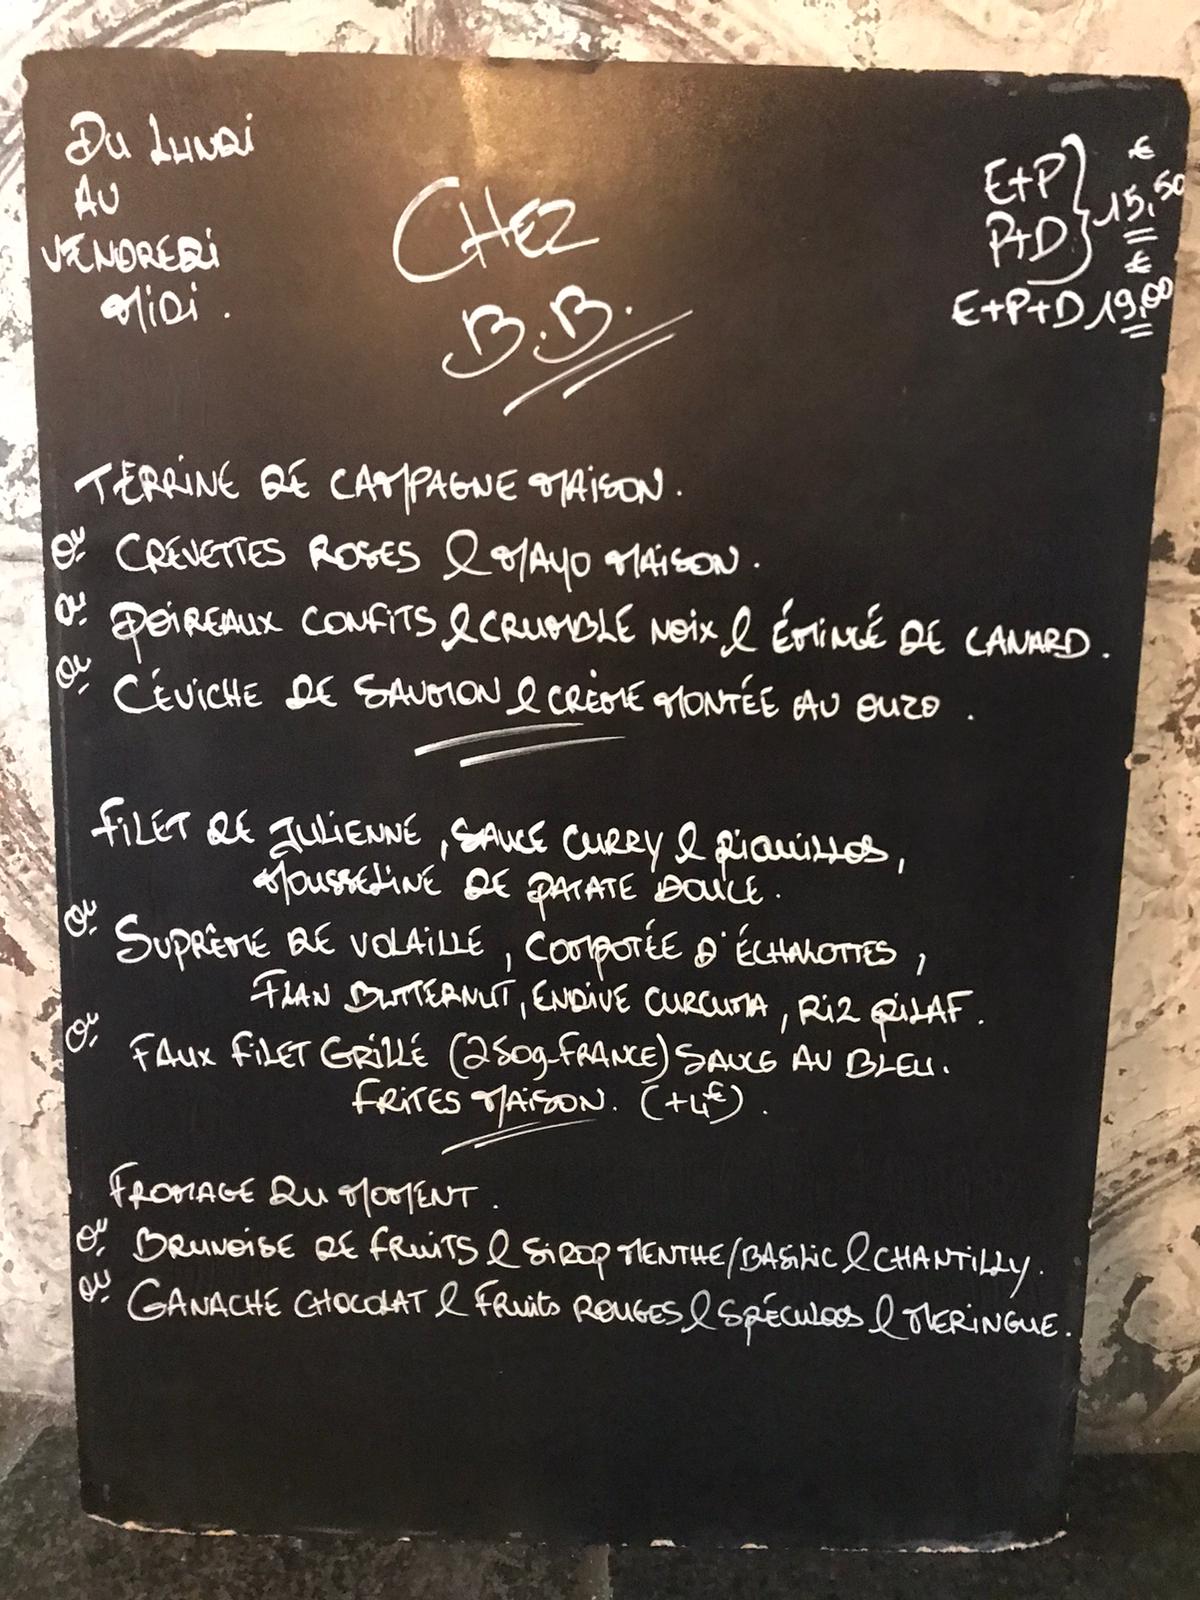 DU LUNDI
AU
VENDREDI
MIDI.
CHEZ
B.B.
E+P
P+D } 15,50 €
E+P+D 19,00 €
TERRINE DE CAMPAGNE MAISON.
ou CREVETTES ROSES & MAYO MAISON.
ou POIREAUX CONFITS & CRUMBLE NOIX & ÉMINCÉ DE CANARD.
ou CÉVICHE DE SAUMON & CRÈME MONTÉE AU OUZO.
FILET DE JULIENNE, SAUCE CURRY & PIQUILLOS,
MOUSSELINE DE PATATE DOUCE.
ou SUPRÊME DE VOLAILLE, COMPOTÉE D'ÉCHALOTTES,
FLAN BUTTERNUT, ENDIVE CURCUMA, RIZ PILAF.
ou FAUX FILET GRILLÉ (250g-FRANCE) SAUCE AU BLEU.
FRITES MAISON. (+4€).
FROMAGE DU MOMENT.
ou BRUNOISE DE FRUITS & SIROP MENTHE/BASILIC & CHANTILLY.
ou GANACHE CHOCOLAT & FRUITS ROUGES & SPÉCULOOS & MERINGUE.